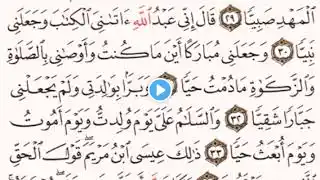 الْمَهْدِ صَبِيًّا ٢٩ قَالَ إِنِّي عَبْدُ اللَّهِ ءَاتَىٰنِيَ الْكِتَٰبَ وَجَعَلَنِي
نَبِيًّا ٣٠ وَجَعَلَنِي مُبَارَكًا أَيْنَ مَا كُنتُ وَأَوْصَٰنِي بِالصَّلَوٰةِ
وَالزَّكَوٰةِ مَا دُمْتُ حَيًّا وَبَرًّا بِوَٰلِدَتِي وَلَمْ يَجْعَلْنِي
جَبَّارًا شَقِيًّا ٣٢ وَالسَّلَٰمُ عَلَيَّ يَوْمَ وُلِدتُّ وَيَوْمَ أَمُوتُ
وَيَوْمَ أُبْعَثُ حَيًّا ٣٣ ذَٰلِكَ عِيسَى ابْنُ مَرْيَمَ ۚ قَوْلَ الْحَقِّ